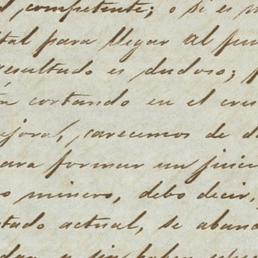 competente; o si es
tal para llegar al
resultado es dudoso;
cortando en el
mejora, carecemos de
para formar un juicio
minero, debo decir,
estado actual, se